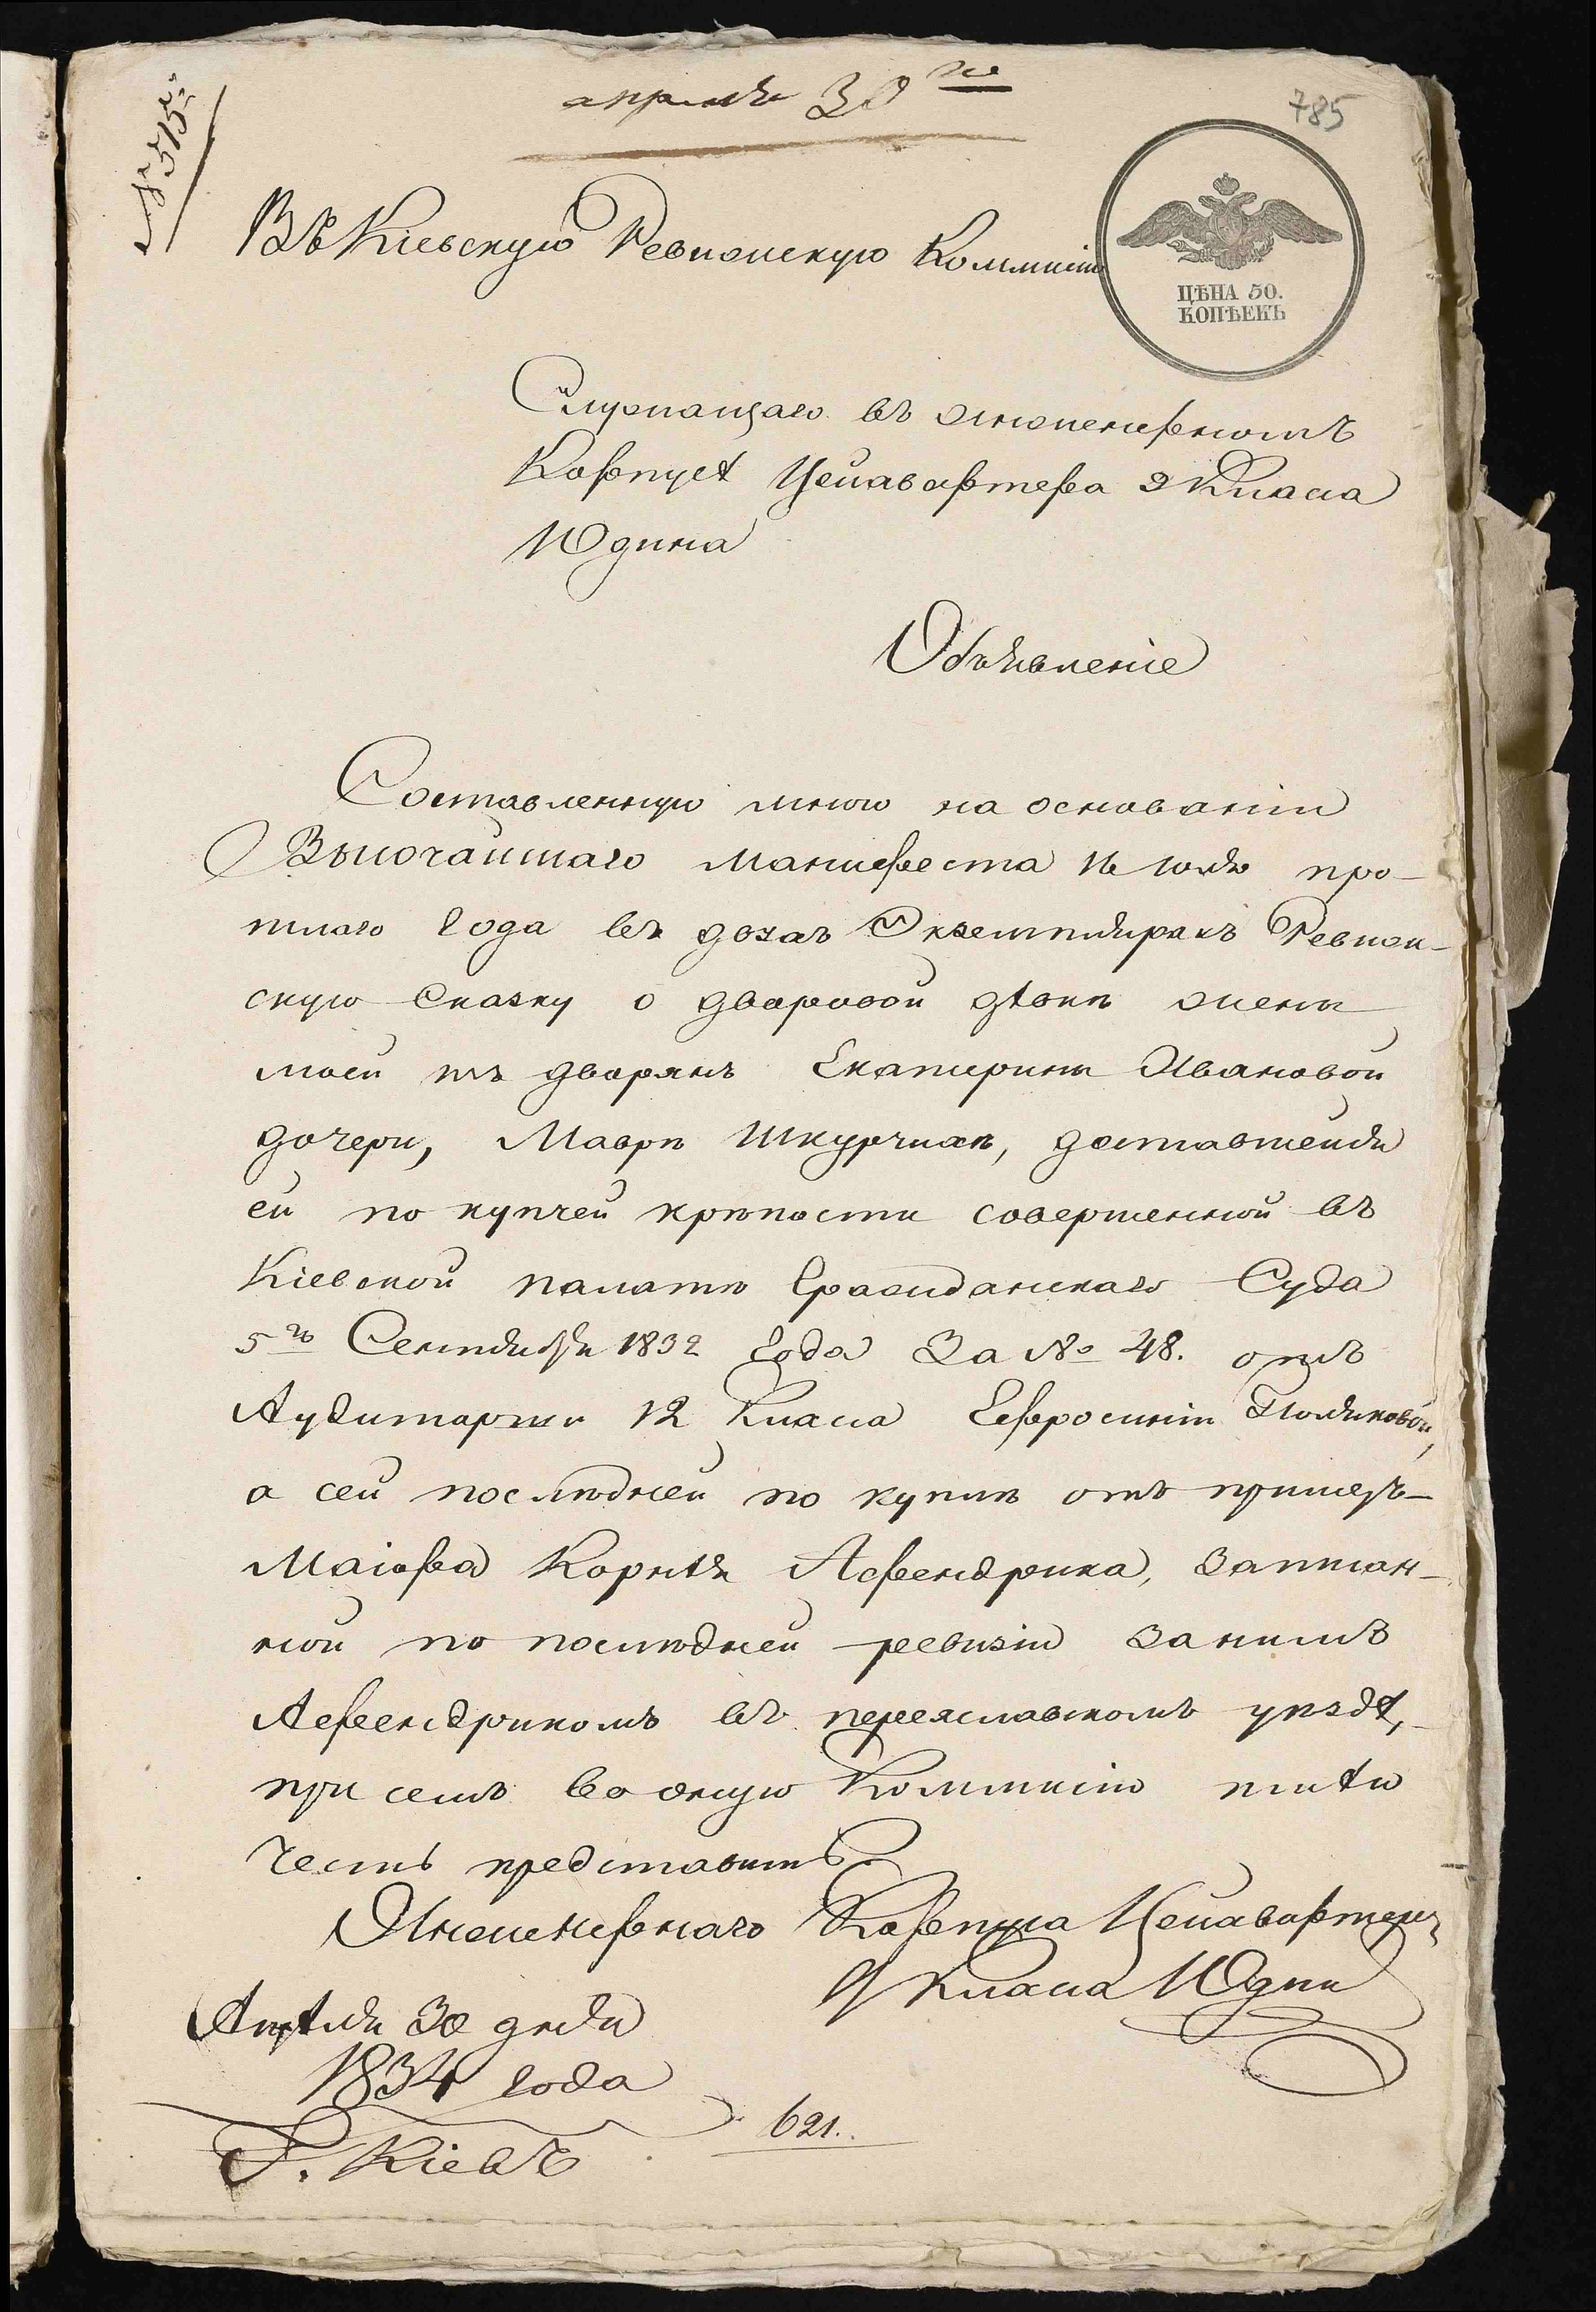 № 515.
апреля 30го
785
Въ Кіевскую Ревизскую Коммисію
ЦѢНА 50.
КОПѢЕКЪ
Служащаго въ Инженерномъ
Корпусѣ Цейхвартера 9 Класса
Юдина
Объявленіе
Составленную мною на основаніи
Высочайшаго Манифеста 16 юня про-
шлаго года въ двохъ Экземплярахъ Ревиз-
скую Сказку о дворовой дѣвкѣ жены
моей изъ дворянъ Екатерины Ивановой
дочери, Маврѣ Шкурчихѣ, доставшейся
ей по купчей крѣпости совершенной въ
Кіевской палатѣ Гражданскаго Суда
5го Сентября 1832 года За № 48. отъ
Аудиторши 12 Класса Ефросиніи Поляковой,
а сей послѣдней по куплѣ отъ примеръ-
Маіора Корнѣя Афендрика, записан-
ной по послѣдней ревизіи За нимъ
Афендрикомъ въ переяславскомъ уѣздѣ,
при семъ во оную Коммисію имѣю
честь представить
Инженернаго Корпуса Цейхвартеръ
9 Класса Юдин
Апрѣля 30 дня
1834 года
Г. Кіевъ
621.